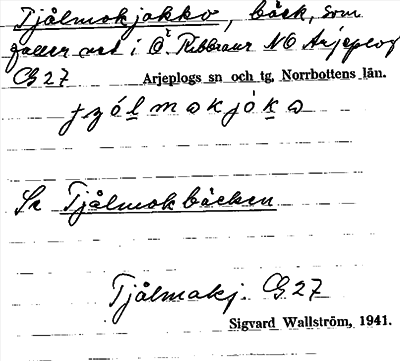 Tjålmokjokko, bäck, som
faller ned i Ö. Ribbraur NO Arjeplog
G 27 Arjeplogs sn och tg, Norrbottens län.
Se Tjålmokbäcken
Tjålmakj. G 27
Sigvard Wallström, 1941.